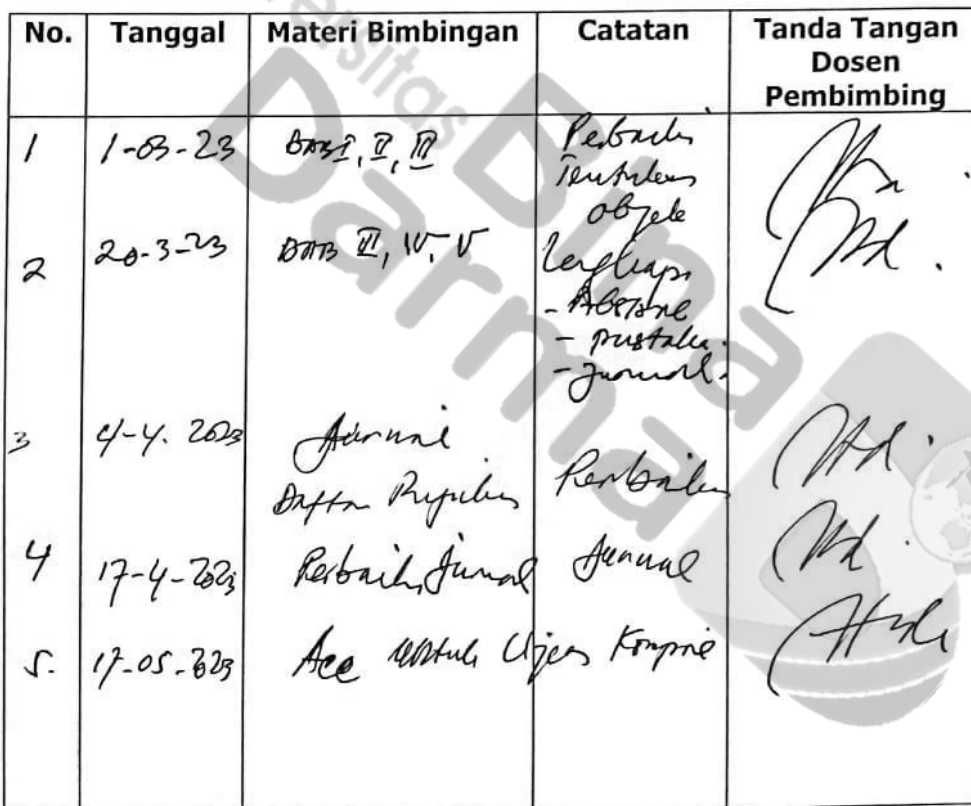 Universitas
Bina
Darma
No. Tanggal Materi Bimbingan Catatan Tanda Tangan Dosen Pembimbing
1 1-03-23 BAB I, II, III Perbaiki
Tentukan
objek
2 20-3-23 BAB III, IV, V Lengkapi
- Abstrak
- pustaka
- Jurnal
3 4-4-2023 Jurnal
Daftar Perbaiki
4 17-4-2023 Perbaiki Jurnal Jurnal
5. 17-05-2023 Acc untuk Ujian Kompre